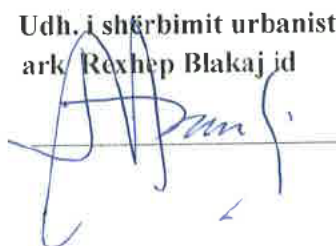 Udh. i shërbimit urbanist
ark Rexhep Blakaj id